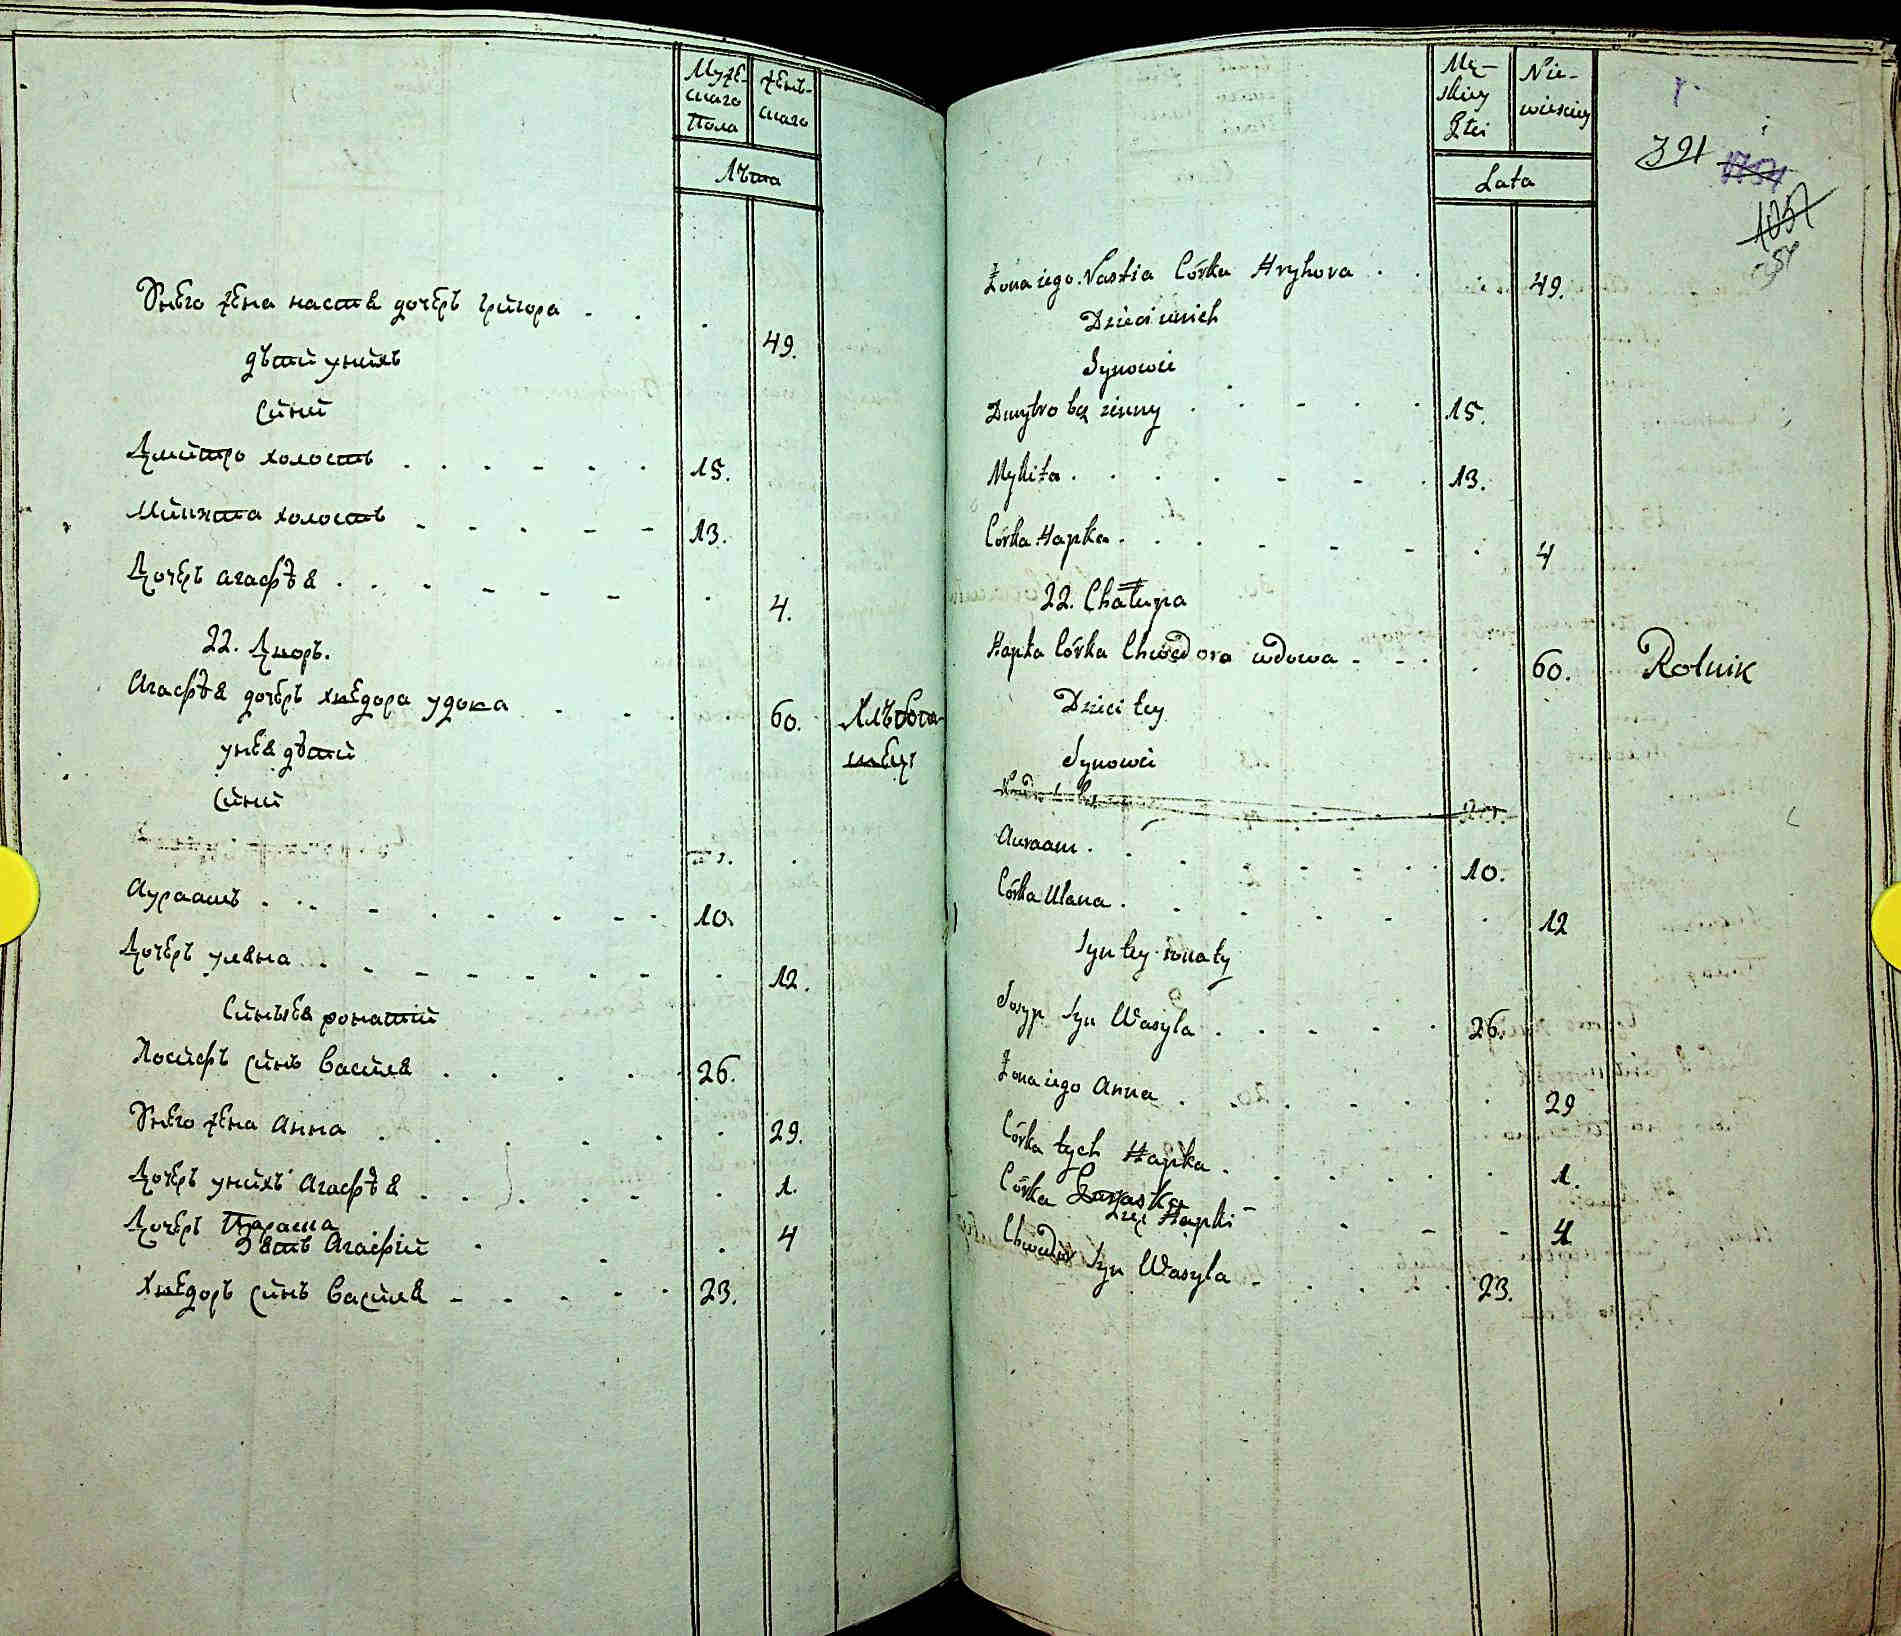 Муже-
скаго
Пола
жень-
скаго
Лѣта
Унего жена настѧ дочерь григора 49.
дѣтй унйхъ
Сйнй
Дмйтро холостъ 15.
Мйкита холостъ 13.
Дочерь агафѣѧ 4.
22. Дворъ.
Агафѣѧ дочерь хведора удова 60. Хлѣбопа-
шець
унеѧ дѣтй
Сйнй
Аураамъ 10.
Дочерь улѧна 12.
Сйнъ еѧ
Иосйфъ сйнъ васйлѧ 26.
Унего жена Анна 29.
Дочерь унйхъ Агафѣѧ 1.
Дочерь Параска 4
Зѧть Агафій
Хведоръ сйнъ васйлѧ 23.
Mę-
skiey
Płci
Nie-
wieskiey
Lata
391
1754
1057
Żona iego Nastia Córka Hryhora 49.
Dzieci unich
Synowie
Dmytro bez żenny 15.
Mykita 13.
Córka Hapka 4
22. Chałupa
Hapka Córka Chwedora wdowa 60. Rolnik
Dzieci tey
Synowie
Auraam 10.
Córka Ulana 12
Syn tey żonaty
Josyp Syn Wasyla 26.
Żona iego Anna 29
Córka tych Hapka 1.
Córka Paraska 4
Hapki
Chwedor Syn Wasyla 23.